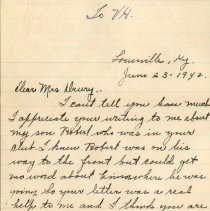 To VH.
Louisville, Ky.
June 23-1942.
Dear Mrs Drury,
I cant tell you how much
I appreciate your writing to me about
my son Robert who was in your
Club. I knew Robert was on his
way to the front but could get
no word about him where he was
going. So your letter was a real
help to me and I think you are